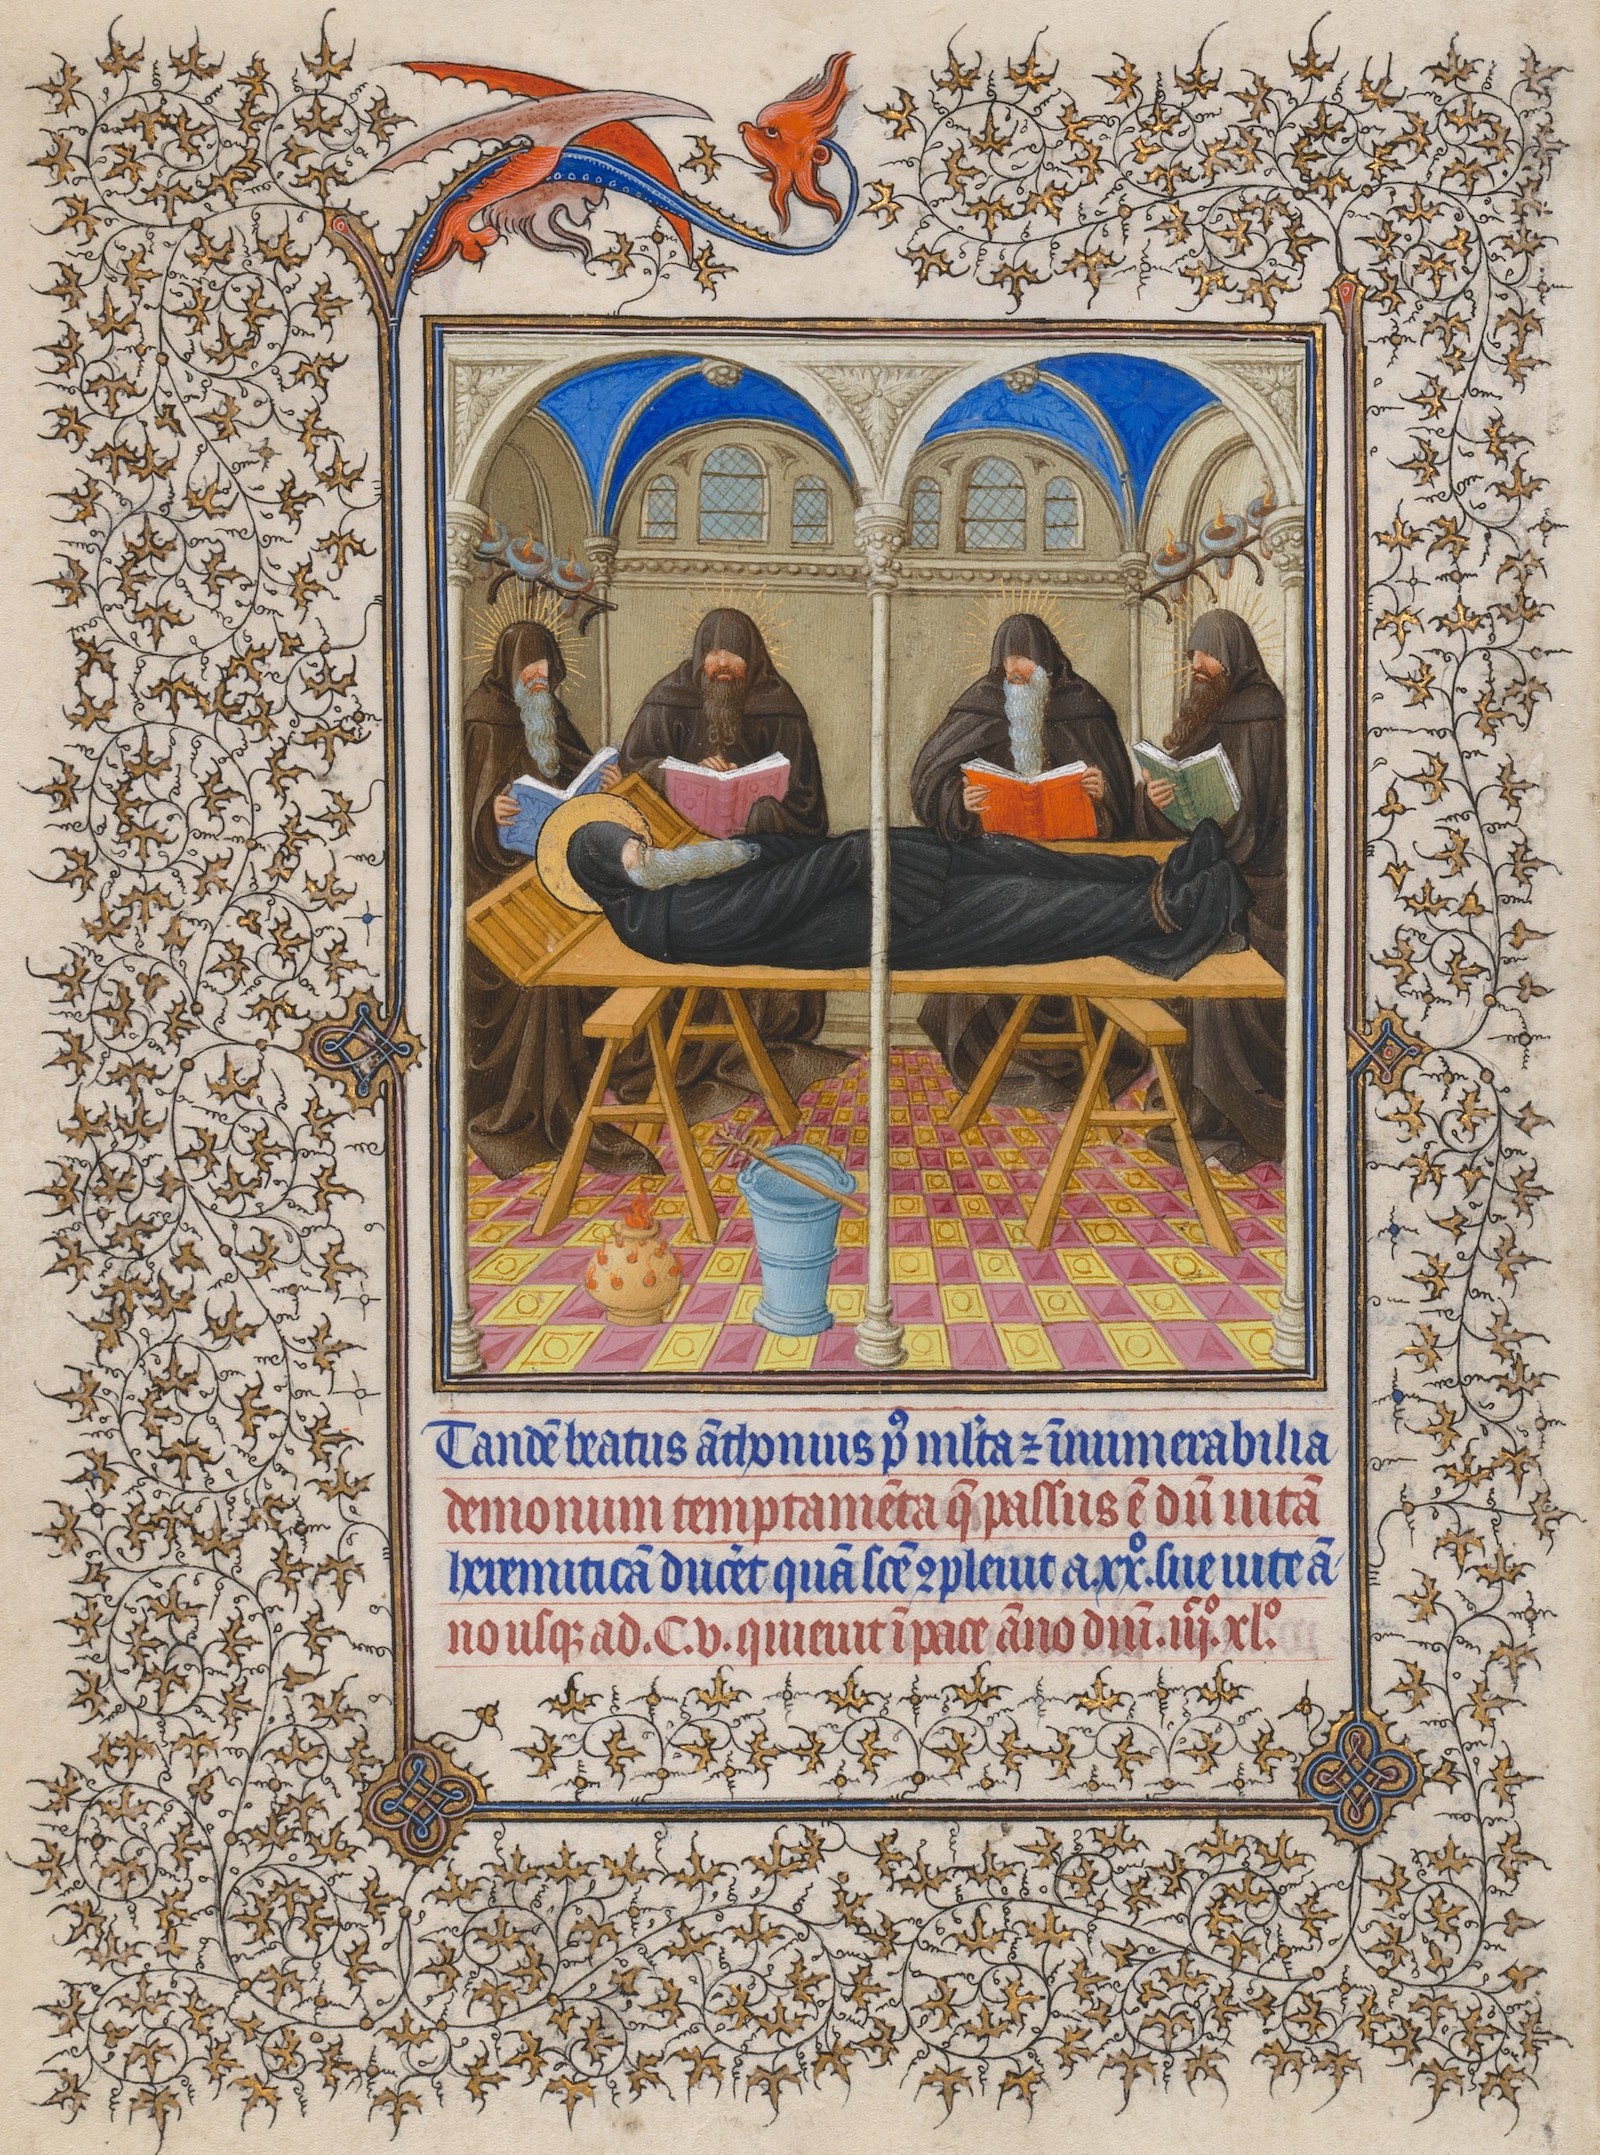 Tandē beatus āthonius pꝰ ml̄ta ⁊ īnumerabilia
demonum temptamēta q̄ passus ē dū uitā
heremiticā ducēt quā sc̄e ꝯpleuit a .xxº. sue uite ā-
no usqꝫ ad .C.v. quieuit ī pace āno dn̄i .iijº. xlº.